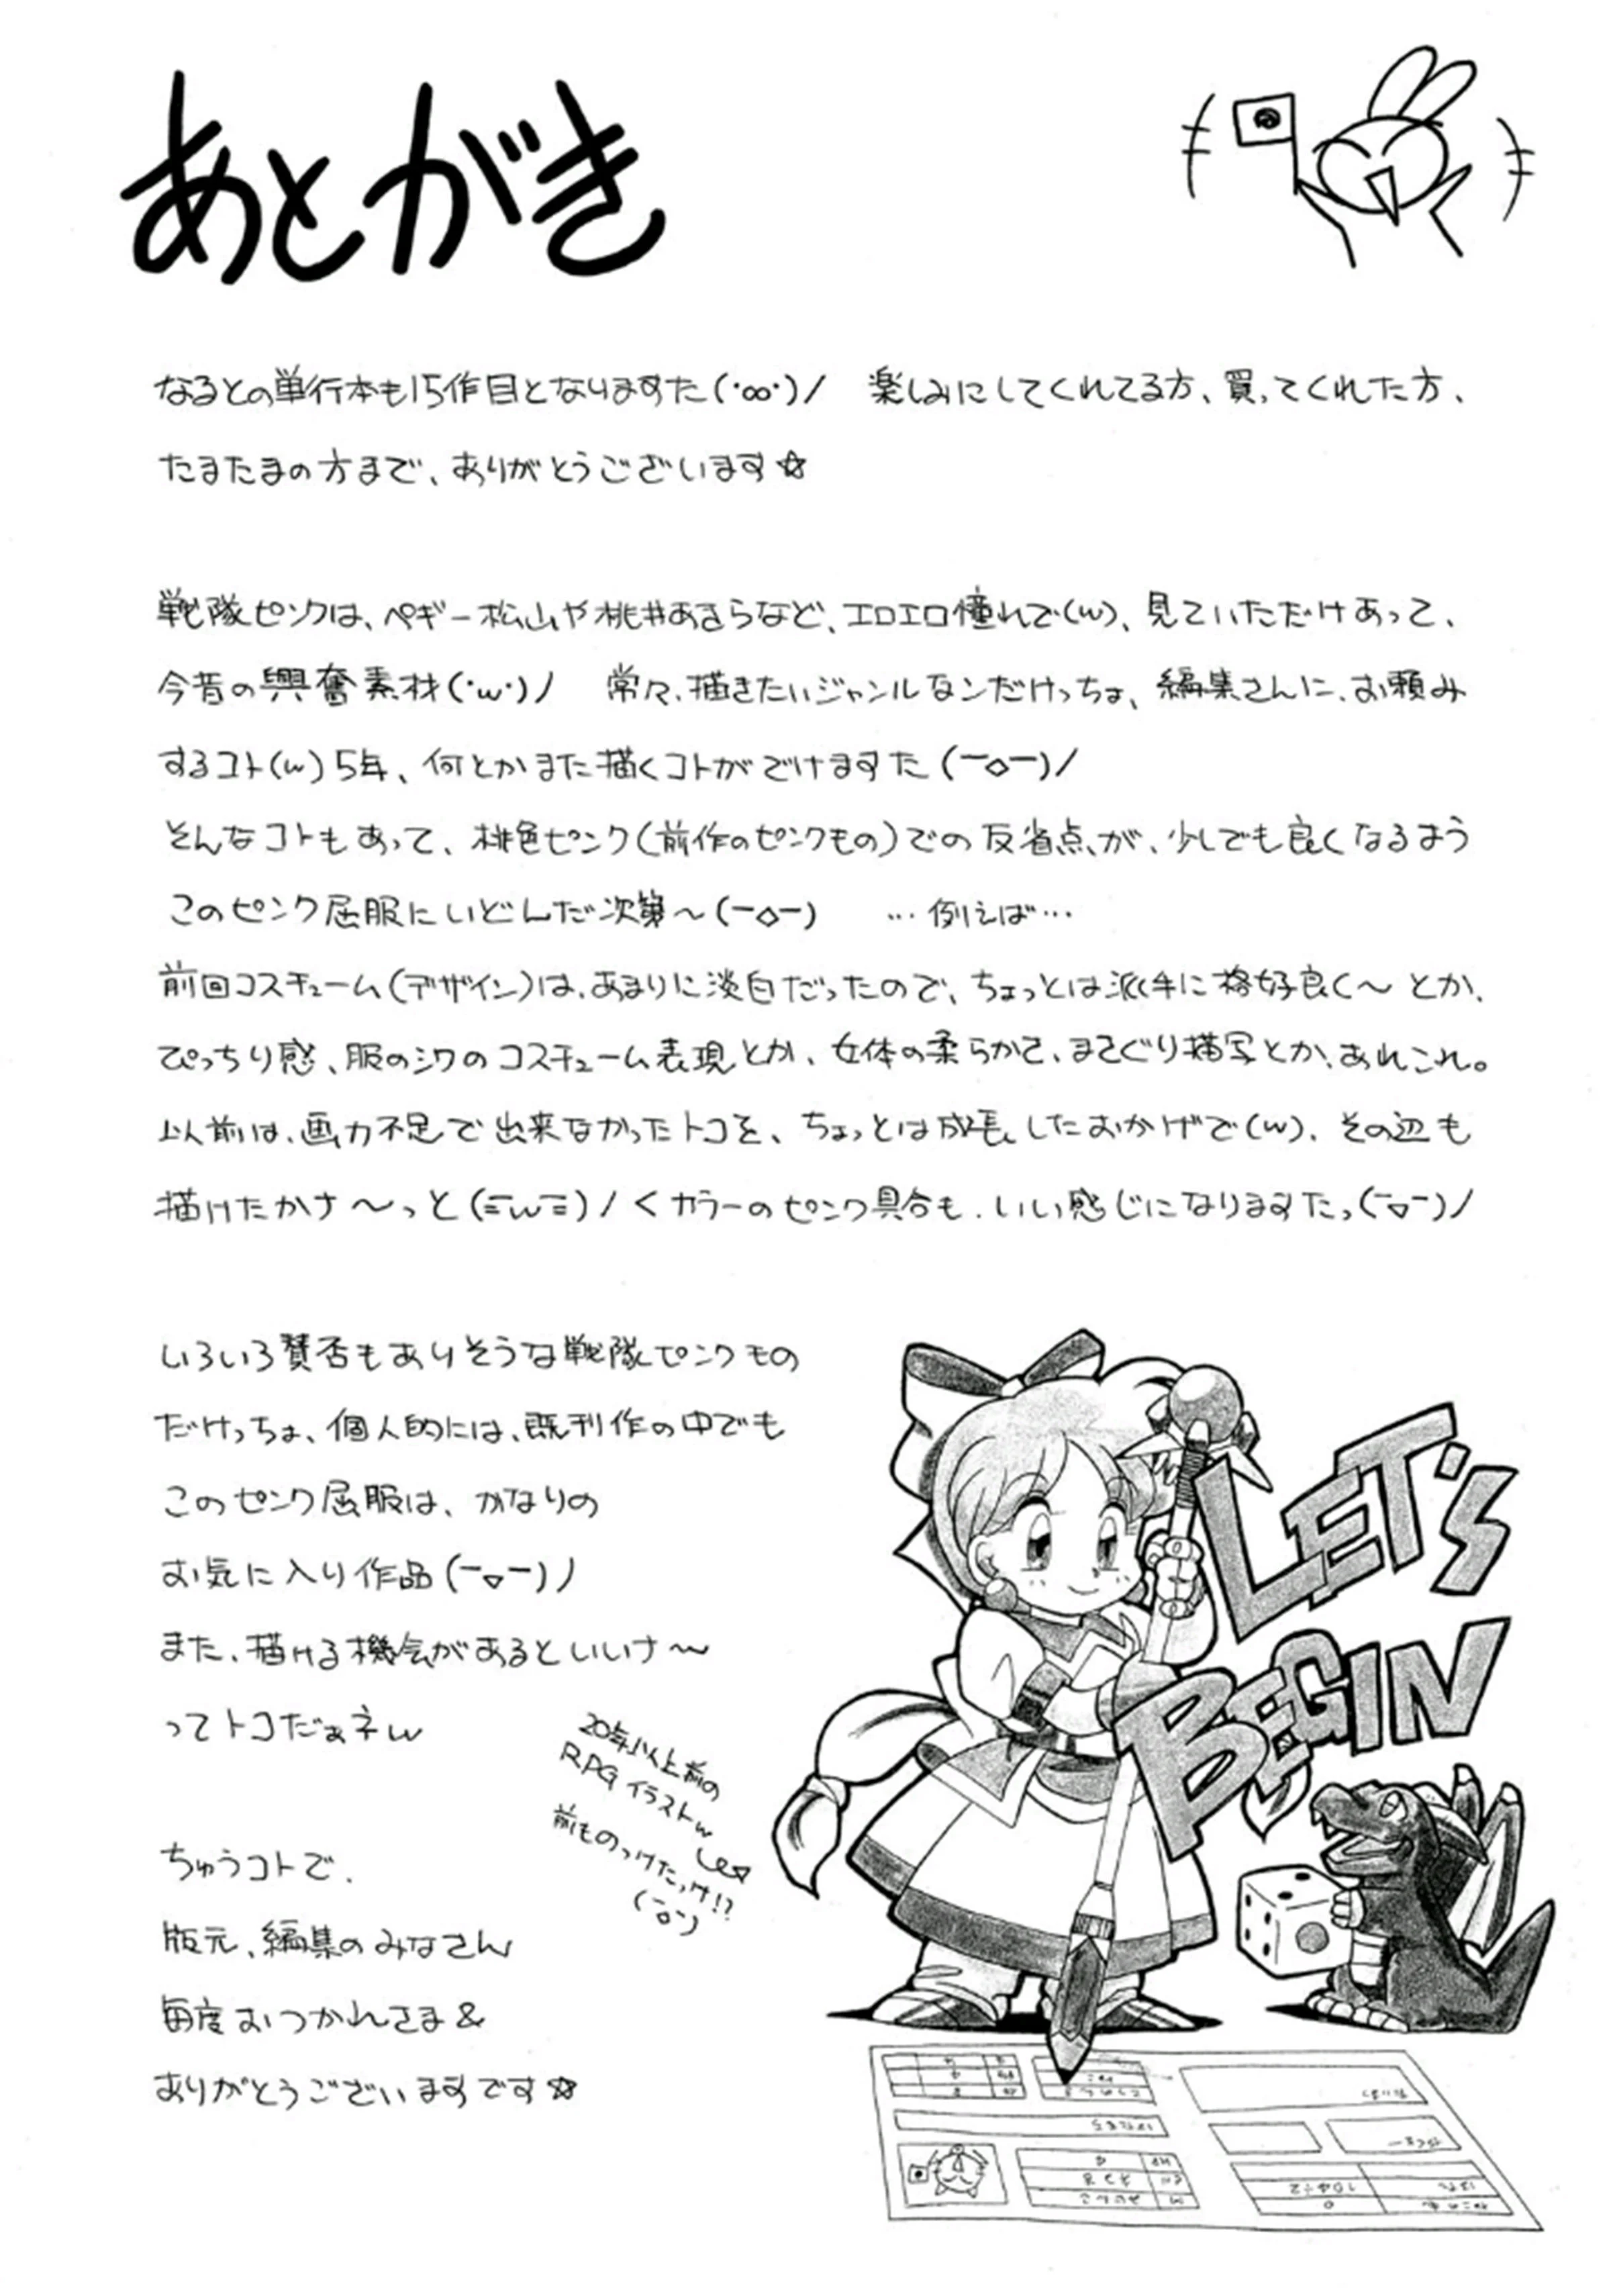 あとがき
なるとの単行本も15作目となりますた(･∞･)/　楽しみにしてくれてる方、買ってくれた方、
たまたまの方まで、ありがとうございます☆
戦隊ピンクは、ペギー松山や桃井あきらなど、エロエロ憧れで(w)、見ていただけあって、
今昔の興奮素材(･w･)ﾉ　常々、描きたいジャンルなンだけっちょ、編集さんに、お頼み
するコト(w)5年、何とかまた描くコトがでけますた(￣◇￣)/
そんなコトもあって、桃色ピンク(前作のピンクもの)での反省点が、少しでも良くなるよう
このピンク屈服にいどんだ次第〜(￣◇￣)　…例えば…
前回コスチューム(デザイン)は、あまりに淡白だったので、ちょっとは派手に格好良く〜とか、
ぴっちり感、服のシワのコスチューム表現とか、女体の柔らかさ、まさぐり描写とか、あれこれ。
以前は、画力不足で出来なかったトコを、ちょっとは成長したおかげで(w)、その辺も
描けたかナ〜っと(=w=)/ くカラーのピンク具合も、いい感じになりますたっ(￣▽￣)/
いろいろ賛否もありそうな戦隊ピンクもの
だけっちょ、個人的には、既刊作の中でも
このピンク屈服は、かなりの
お気に入り作品(￣▽￣)ﾉ
また、描ける機会があるといいナ〜
ってトコだぁネw
20年以上前の
RPGイラストw
前ものっけたっけ!?
(￣□￣)
ちゅうコトで、
版元、編集のみなさん
毎度おつかれさま&
ありがとうございますです☆
LET'S
BEGIN